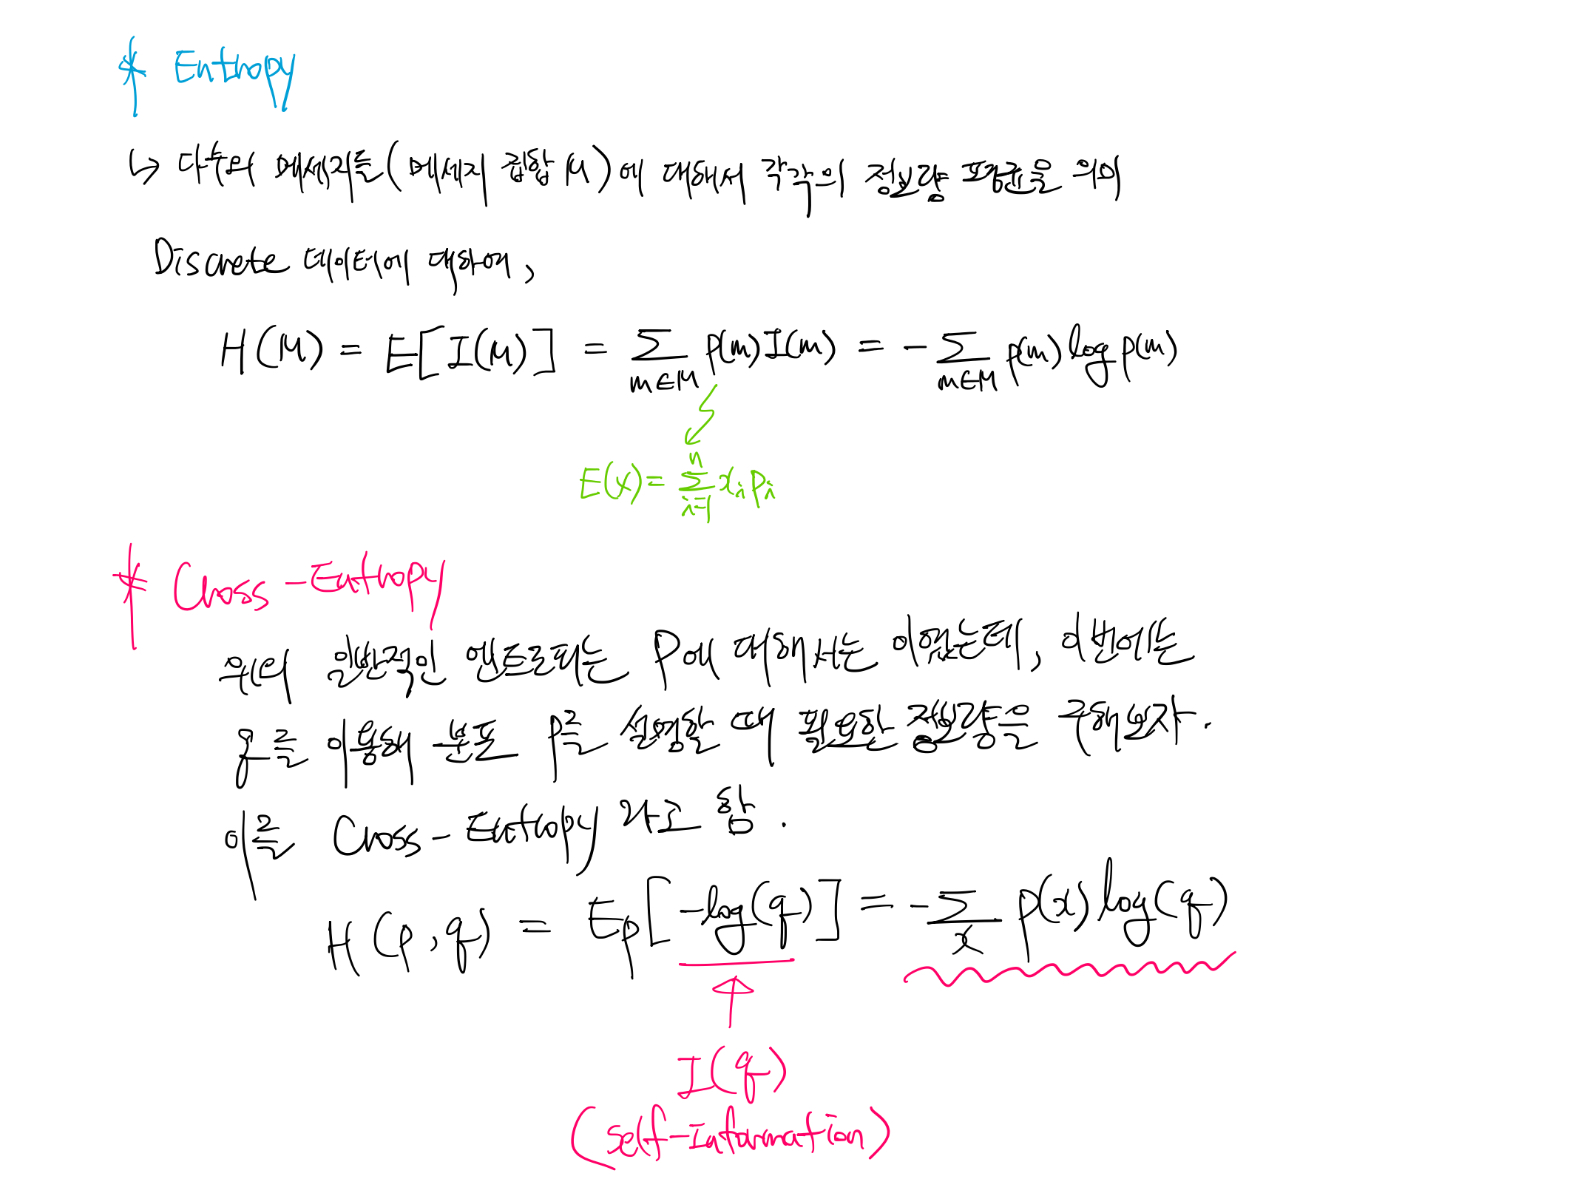 * Entropy
↳ 다수의 메세지들(메세지 집합 M)에 대해서 각각의 정보량 평균을 의미
Discrete 데이터에 대하여,
H(M) = E[I(M)] = ∑_{m∈M} p(m)I(m) = -∑_{m∈M} p(m) log p(m)
E(x) = ∑_{i=1}^{n} x_i p_i
* Cross-Entropy
위의 일반적인 엔트로피는 P에 대해서는 이었는데, 이번에는
q를 이용해 분포 p를 설명할 때 필요한 정보량을 구해보자.
이를 Cross-Entropy 라고 함.
H(p,q) = E_p[-log(q)] = -∑_x p(x) log(q)
I(q)
(self-Information)